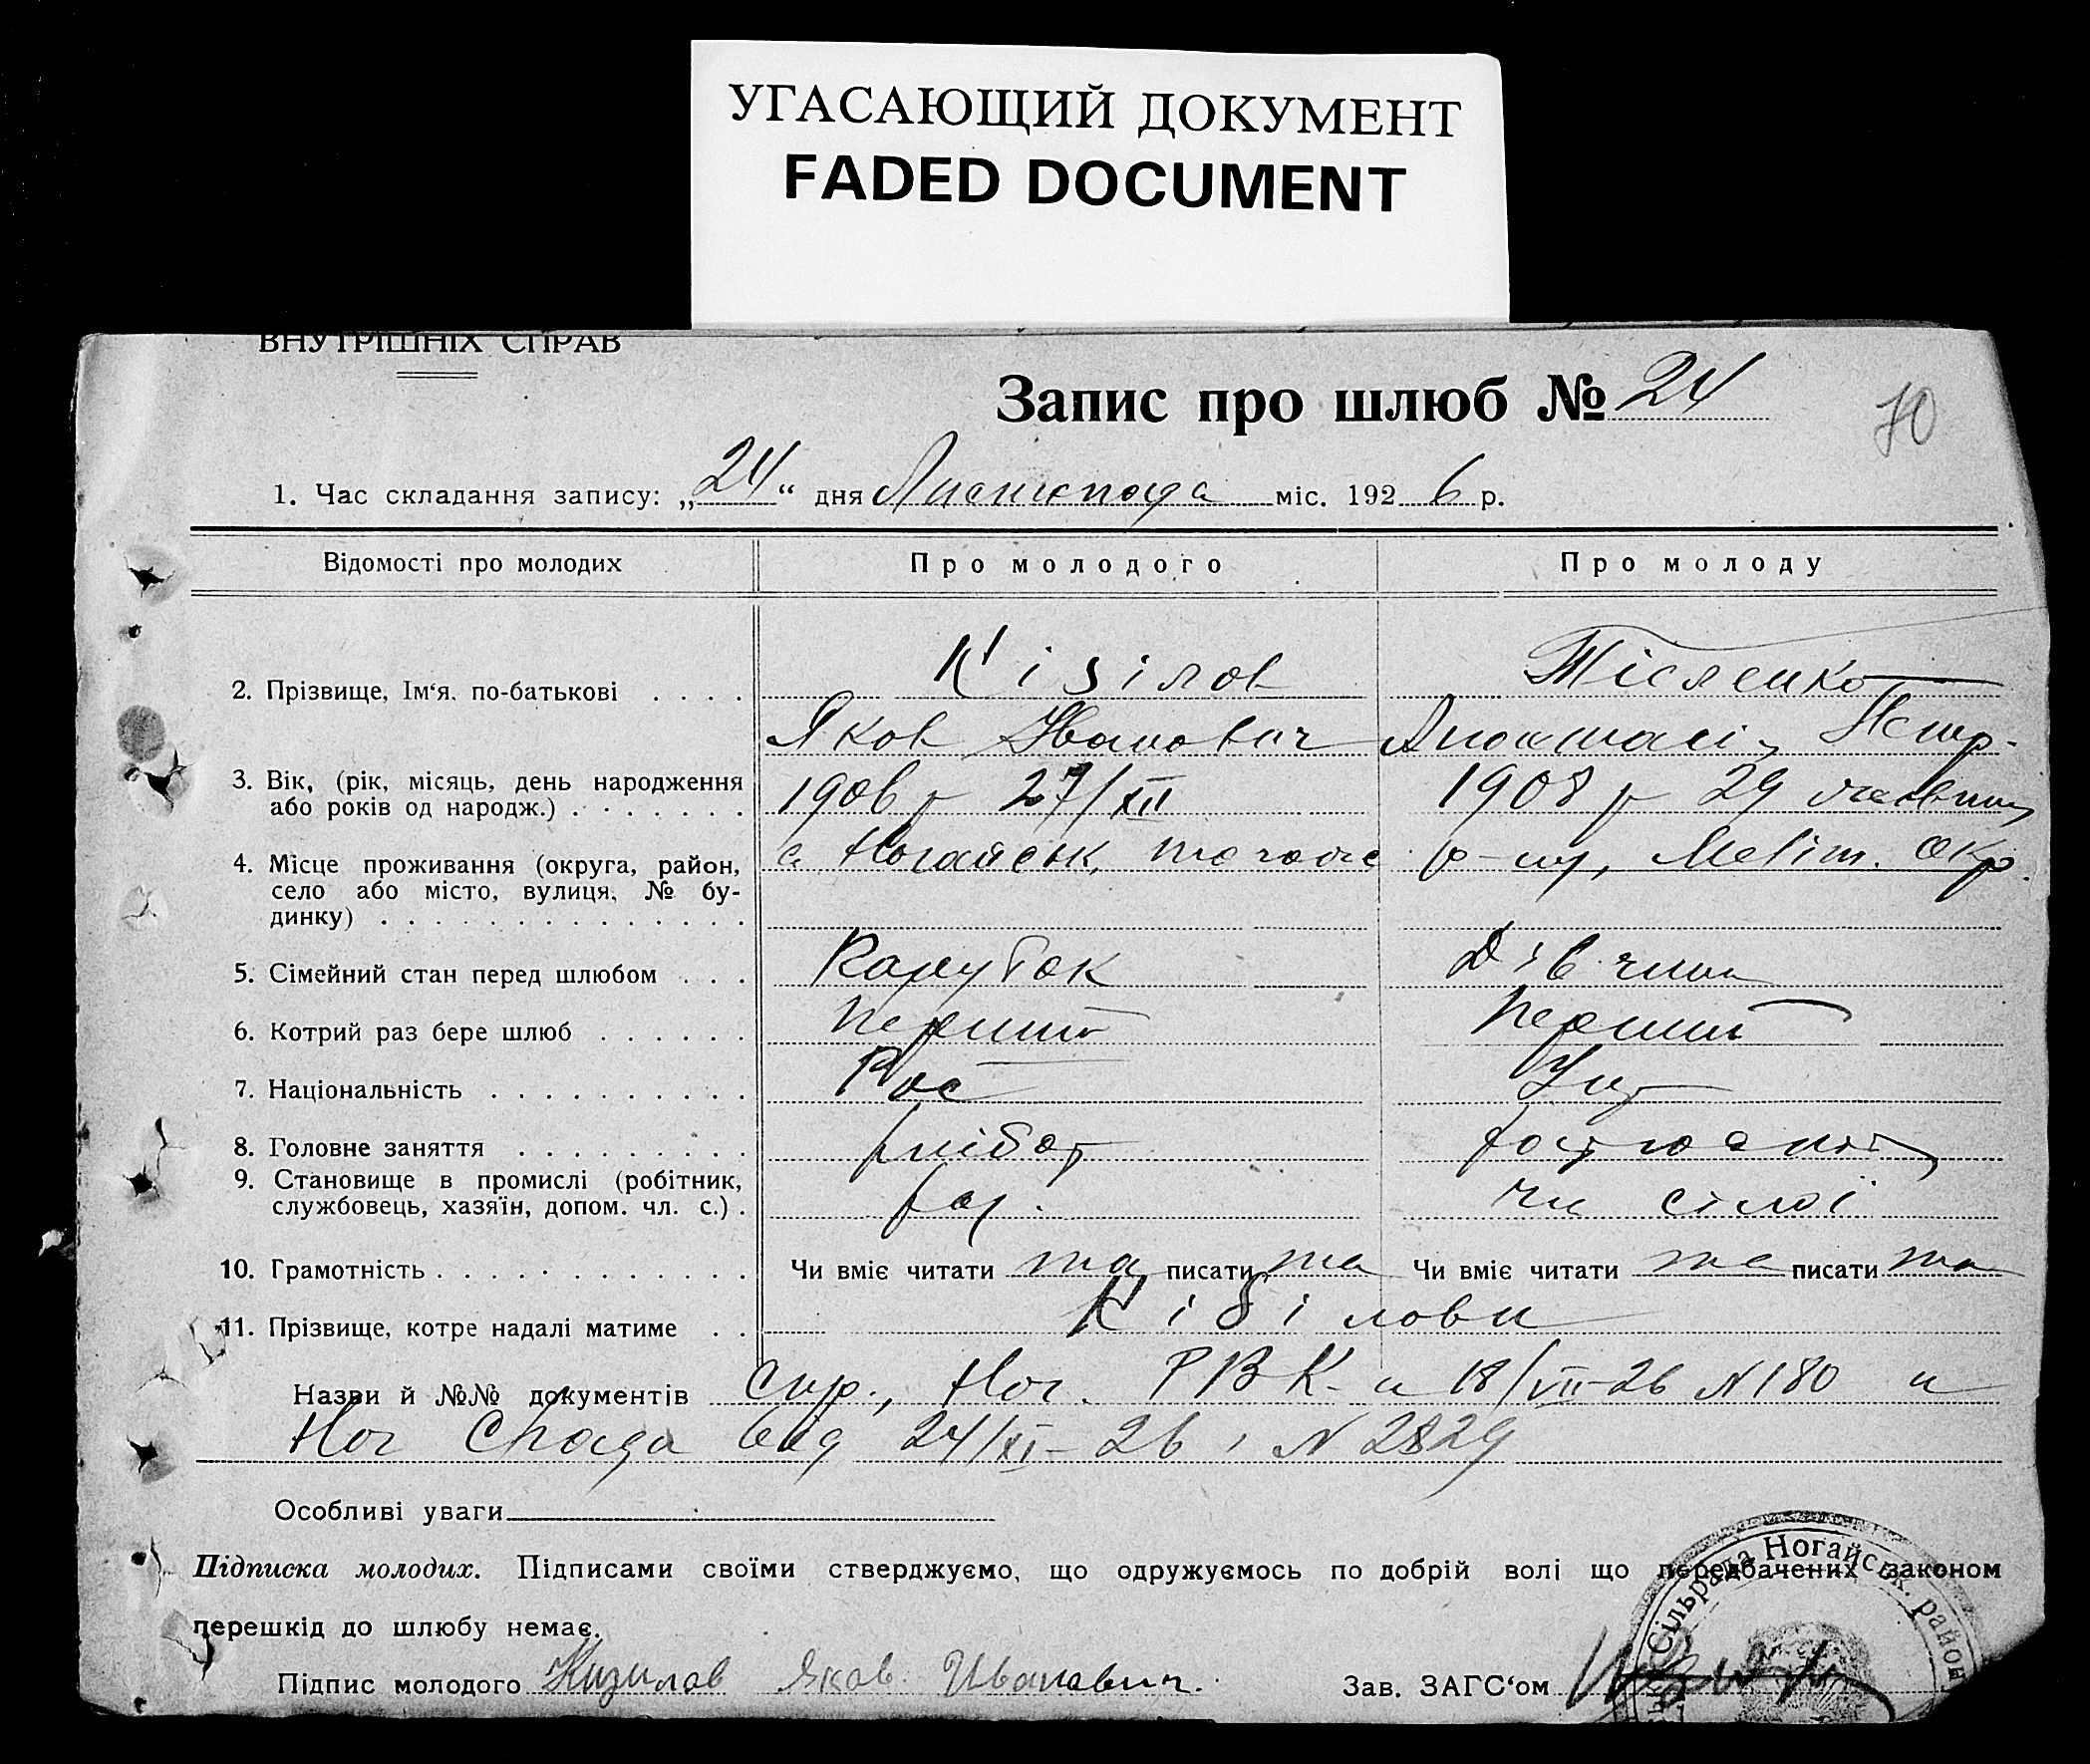 УГАСАЮЩИЙ ДОКУМЕНТ
FADED DOCUMENT
ВНУТРІШНІХ СПРАВ
Запис про шлюб № 24
70
1. Час складання запису: „24“ дня Листопада міс. 1926 р.
Відомості про молодих Про молодого Про молоду
2. Прізвище, Ім‘я. по-батькові Кізілов Тісленко
Яков Иванович Петр.
3. Вік, (рік, місяць, день народження
або років од народж.) 1906 р 27/XII 1908 р 29
4. Місце проживання (округа, район, с Ногайськ, Меліт. Окр.
село або місто, вулиця, № бу-
динку)
5. Сімейний стан перед шлюбом Парубок Дівчина
6. Котрий раз бере шлюб перший перший
7. Національність Рос Укр
8. Головне заняття хлібор
9. Становище в промислі (робітник,
службовець, хазяїн, допом. чл. с.) чл сімї
10. Грамотність Чи вміє читати та писати та Чи вміє читати та писати та
11. Прізвище, котре надалі матиме Кізілови
Назви й №№ документів Спр., Ног. РВК. 18/VII-26 N 180 и
Ног Сһрада від 24/XI-26, N 2829
Особливі уваги
Підписка молодих. Підписами своїми стверджуємо, що одружуємось по добрій волі що передбачених законом
перешкід до шлюбу немає.
Підпис молодого Кизилов Яков Иванович. Зав. ЗАГС‘ом
Сільрада Ногайськ. район